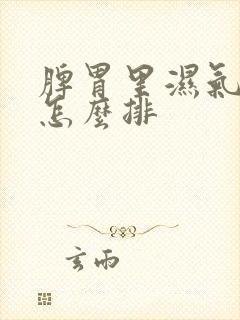 脾胃里濕氣
怎麼排
玄雨